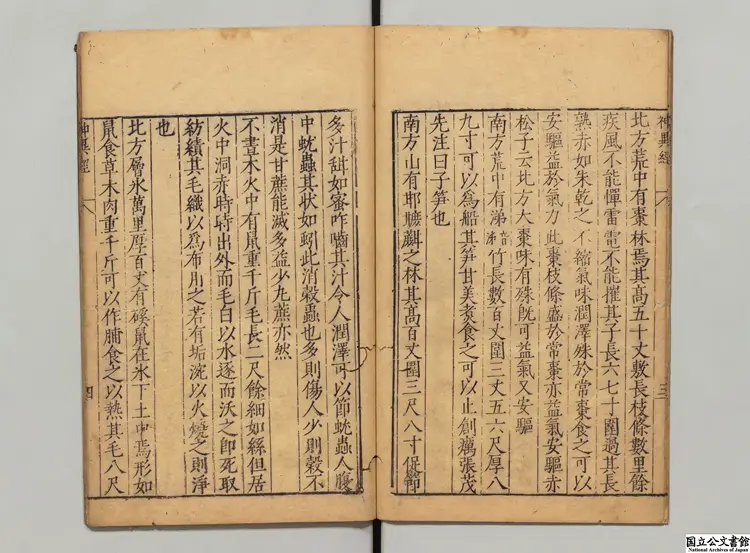 神異經
三
北方荒中有棗林焉其高五十丈敷長枝條數里餘
疾風不能偃雷電不能摧其子長六七寸圍過其長
熟赤如朱乾之不縮氣味潤澤殊於常棗食之可以
安軀益於氣力此棗枝條盛於常棗亦益氣安軀赤
松子云北方大棗味有殊旣可益氣又安軀
南方荒中有涕音替竹長數百丈圍三丈五六尺厚八
九寸可以為船其笋甘美煑食之可以止創癘張茂
先注曰子笋也
南方山有邯㯆之林其高百丈圍三尺八寸促節
多汁甜如蜜咋嚙其汁令人潤澤可以節蚘蟲人腹
中蚘蟲其狀如蚓此消穀蟲也多則傷人少則穀不
消是甘蔗能滅多益少凡蔗亦然
不晝木火中有鼠重千斤毛長二尺餘細如絲但居
火中洞赤時時出外而毛白以水逐而沃之卽死取
紡績其毛織以為布用之若有垢浣以火燒之則淨
也
北方層氷萬里厚百丈有磎鼠在氷下土中焉形如
鼠食草木肉重千斤可以作脯食之以熱其毛八尺
神異經
四
国立公文書館
National Archives of Japan